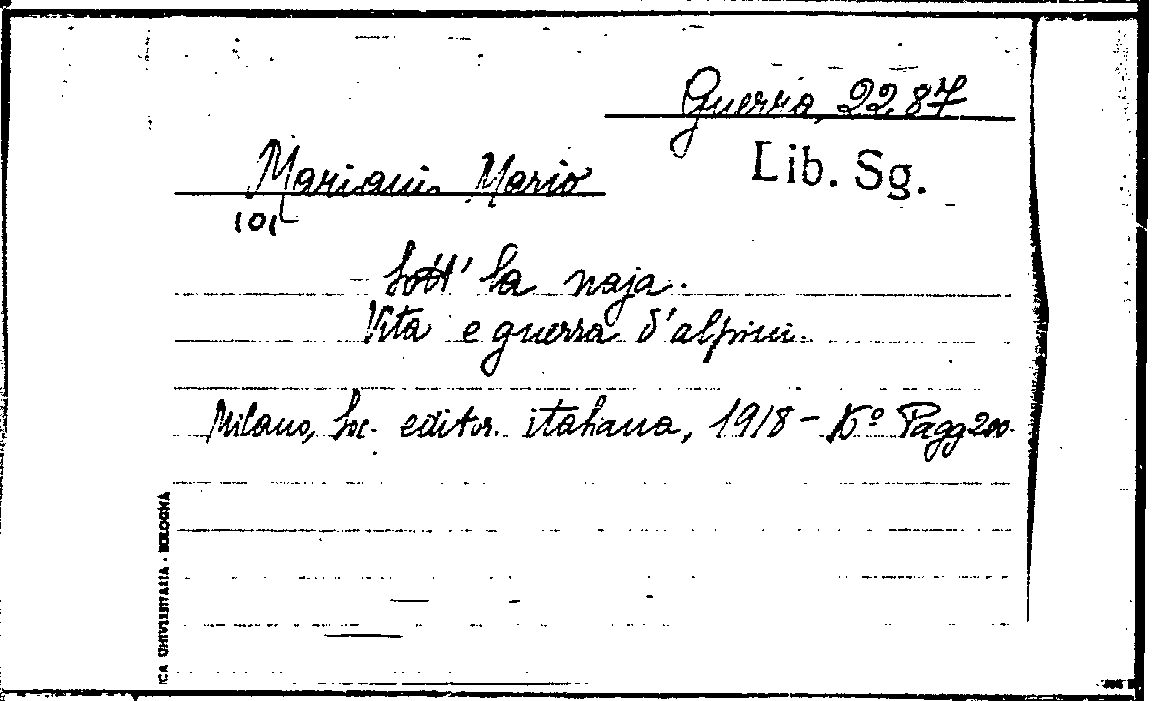 Guerra, 2287
Lib. Sg.
Mariani Mario
101
Sott' la naja.
Vita e guerra d'alpini.
Milano, Soc. editor. italiana, 1918 - 16º Pagg 200.
UNIVERSITARIA - BOLOGNA